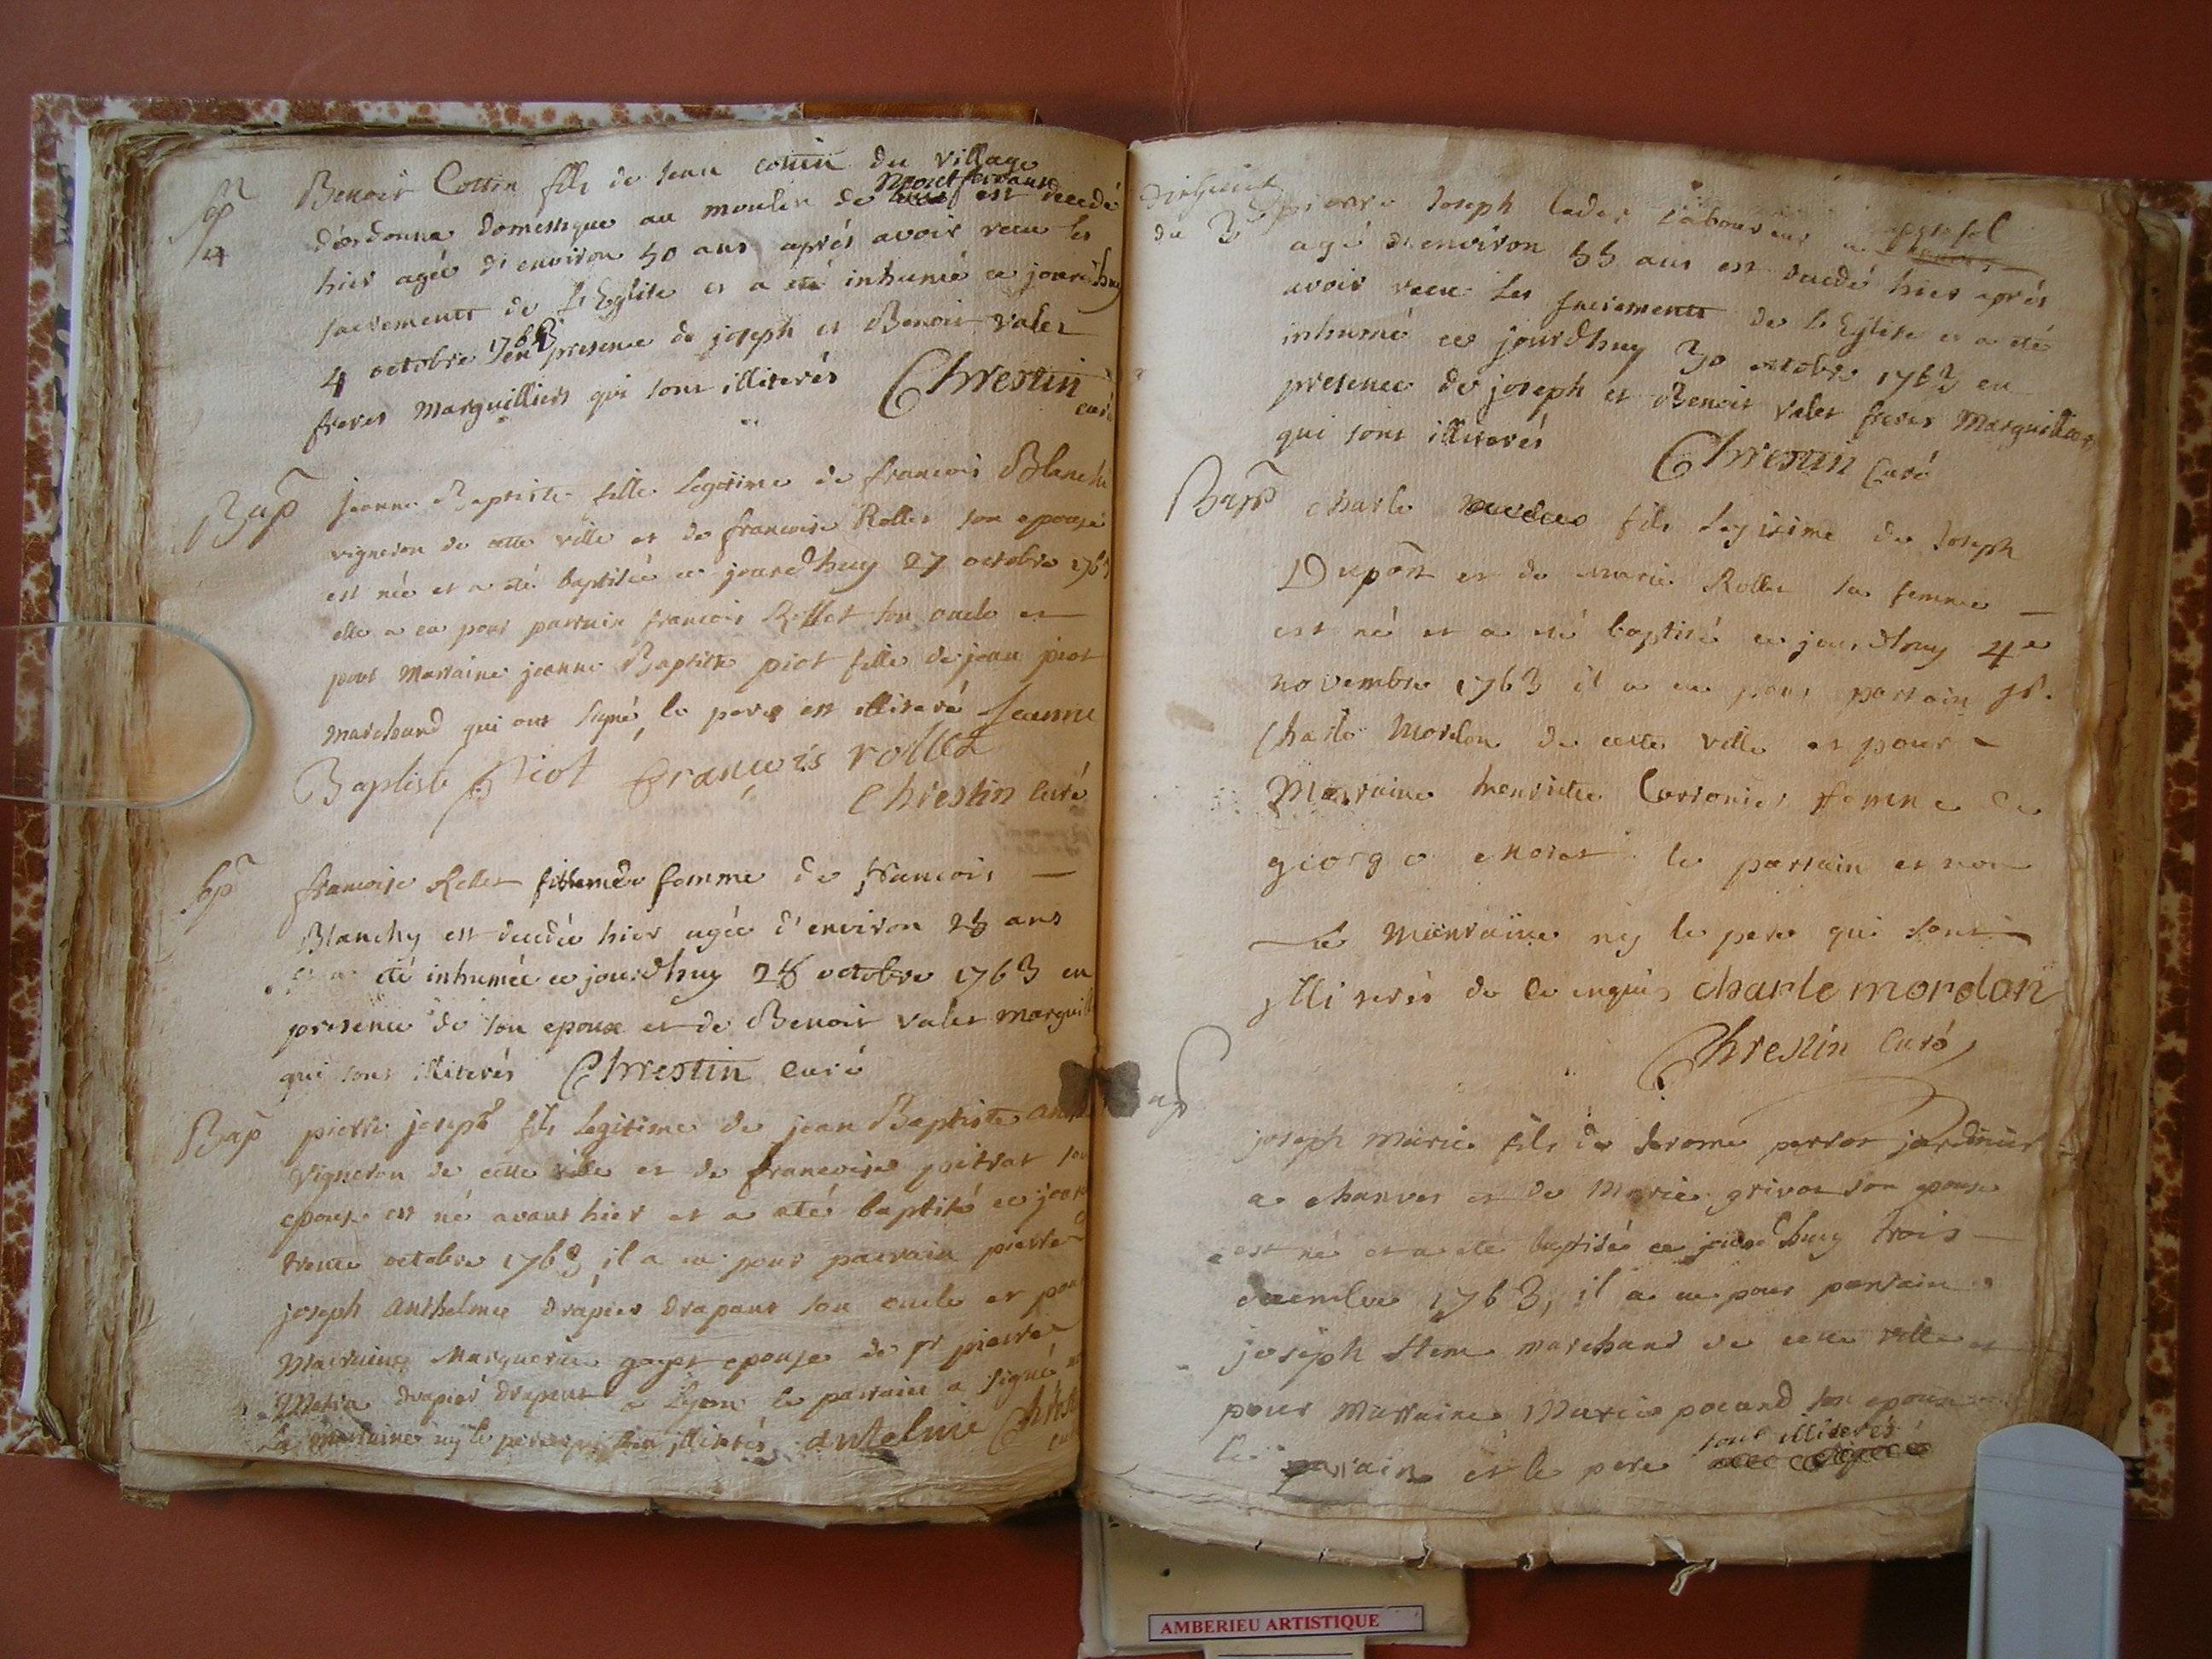 Sep
4
Benoit Cottin fils de Jean cottin du village
d'ordonna domestique au moulin de Montferrant est decedé
hier agée d'environ 50 ans aprés avoir receu les
sacrements de L'Eglise et a eté inhumé ce jourdhuy
4 octobre 1763 en presence de joseph et Benoit valet
freres Marguilliers qui sont illiterés Chrestin
curé
Bap
jeanne Baptiste fille Legitime de francois Blanchi
vigneron de cette ville et de francoise Rollet son epouse
est née et a eté baptisée ce jourdhuy 27 octobre 1763
elle a eu pour parrain francois Rollet son oncle et
pour Marraine jeanne Baptiste piot fille de jean piot
marchand qui ont signé, le pere est illiteré Jeanne
Baptiste piot françois rollet
Chrestin Curé
Sep
francoise Rollet femme de francois
Blanchy est decedée hier agée d'environ 28 ans
et a eté inhumée ce jourdhuy 28 octobre 1763 en
presence de son epoux et de Benoit valet marguil
qui sont illiterés Chrestin curé
Bap
pierre joseph fils Legitime de jean Baptiste
vigneron de cette ville et de francoise poitrat son
epouse est né avant hier et a eté baptisé ce jour
trente octobre 1763, il a eu pour parrain pierre
joseph Anthelme drapier drapant son oncle et pour
Marraine Marguerite goyet epouse de sr pierre
drapier drapant a Lyon le parrain a signé
La marraine ny le pere illiterés Antelme Chrest
du 30
pierre Joseph Laboureur a
agé d'environ 55 ans est decedé hier aprés
avoir receu les sacrements de L'Eglise et a eté
inhumé ce jourdhuy 30 octobre 1763 en
presence de joseph et Benoit valet freres Marguilliers
qui sont illiterés Chrestin Curé
Bap
charle fils Legitime de Joseph
Dupont et de marie Rollet sa femme
est né et a eté baptisé ce jourdhuy 4e
novembre 1763 il a eu pour parrain sr.
Charle Mordon de cette ville et pour
Marraine henriette femme de
george Moret le parrain et non
la Marraine ny le pere qui sont
illiterés de ce enquis charle mordon
Chrestin Curé
Bap
joseph Marie fils de Jerome perret jardinier
a chanves et de Marie grivot son epouse
est né et a eté baptisé ce jourdhuy trois
decembre 1763, il a eu pour parrain
joseph marchand de cette ville et
pour Marraine Marie pocand son epouse
le parrain et le pere sont illiterés
AMBERIEU ARTISTIQUE